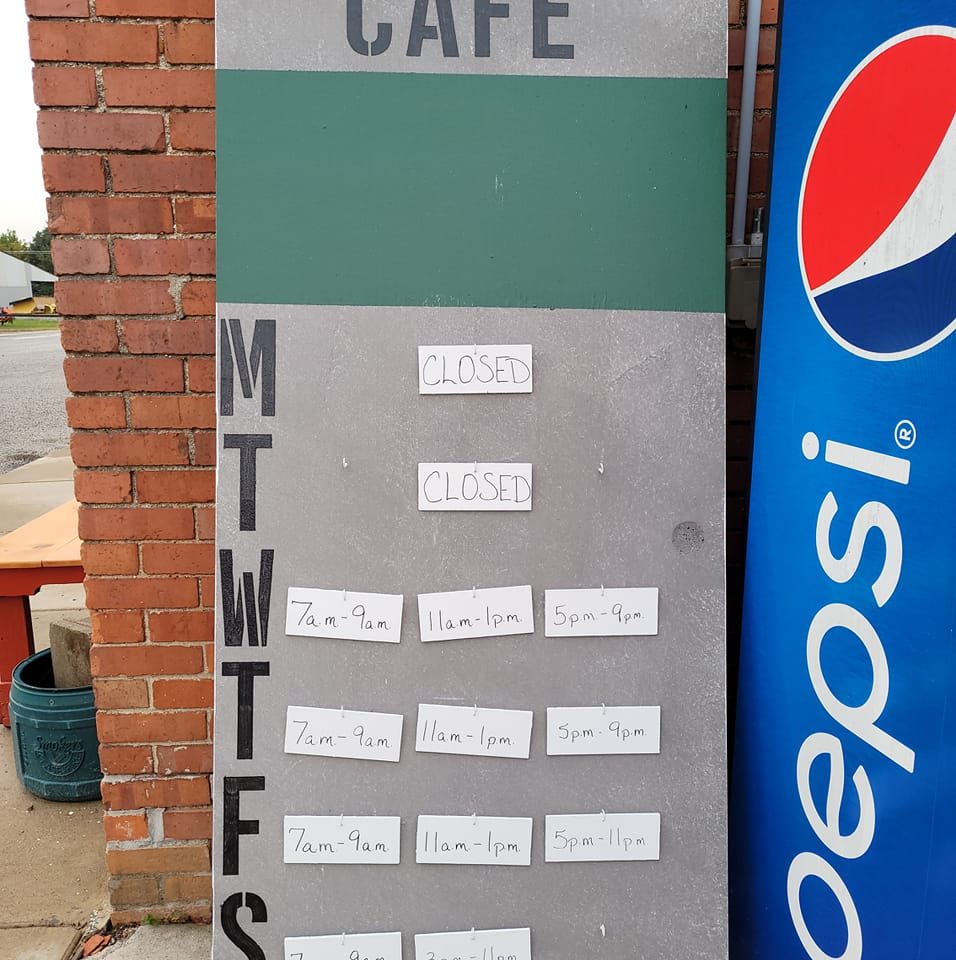 CAFE
M CLOSED
T CLOSED
W 7a.m-9am. 11am-1p.m. 5p.m.-9p.m.
T 7am-9am. 11am-1p.m. 5p.m.-9p.m.
F 7am-9am. 11am-1p.m. 5p.m-11p.m.
S
pepsi®
Smokers